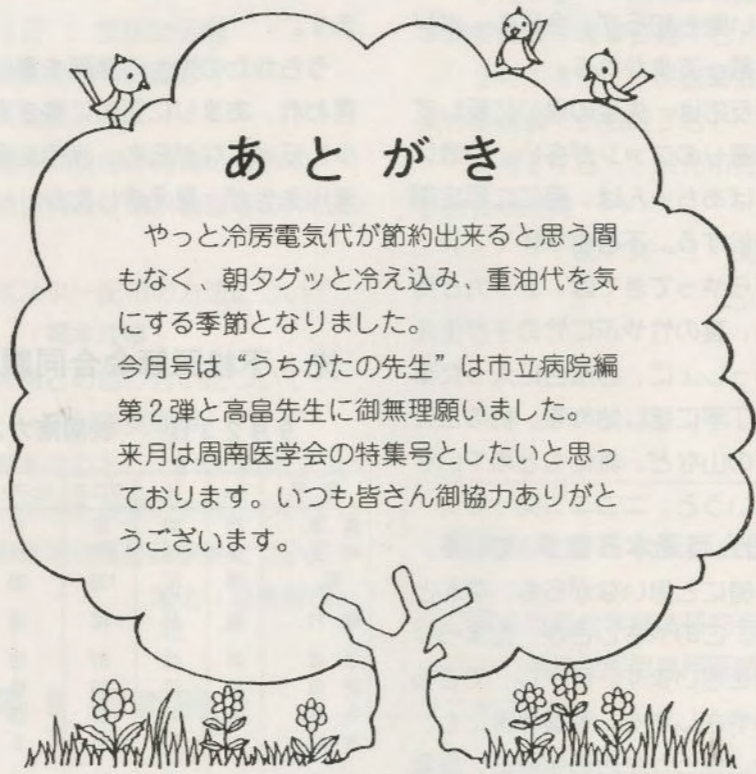 あとがき
やっと冷房電気代が節約出来ると思う間
もなく、朝夕グッと冷え込み、重油代を気
にする季節となりました。
今月号は“うちがたの先生”は市立病院編
第2弾と高畠先生に御無理願いました。
来月は周南医学会の特集号としたいと思っ
ております。いつも皆さん御協力ありがと
うございます。